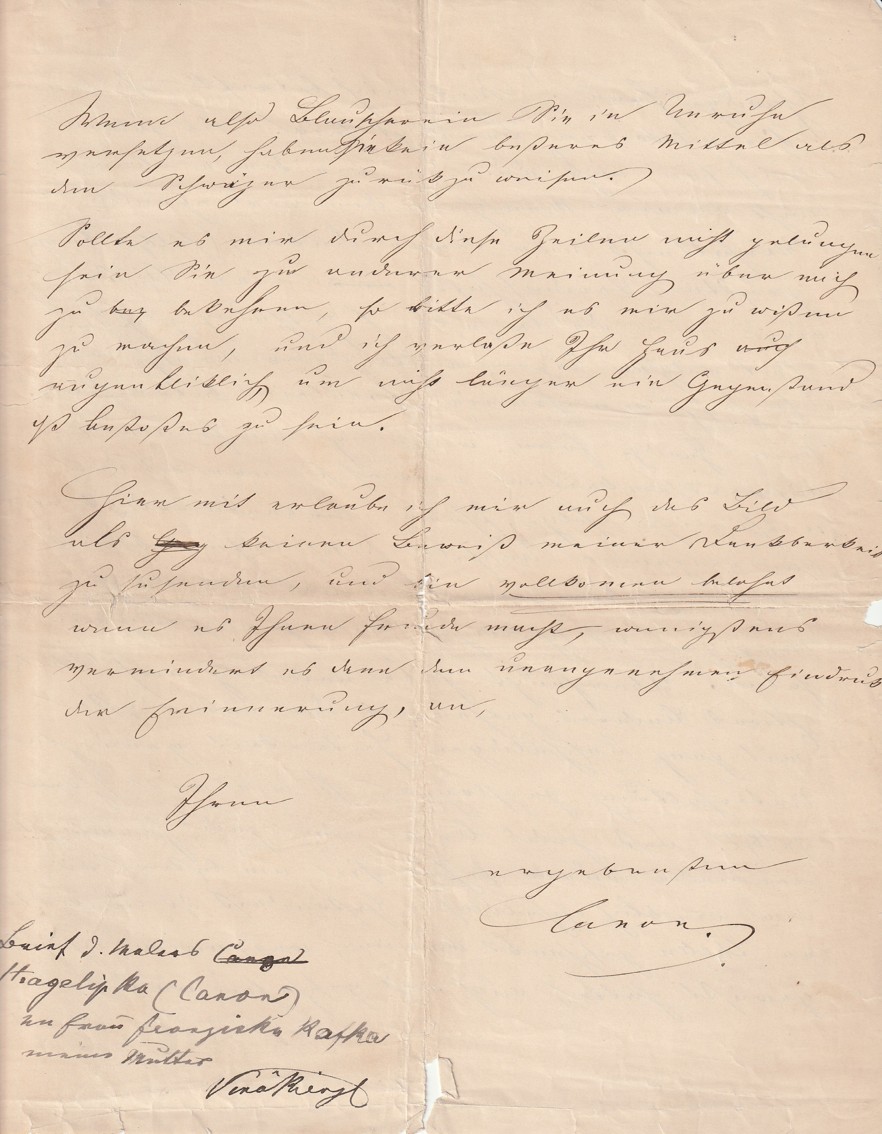 Wenn also Plauschereien Sie in Unruhe
versetzen, haben Sie kein beßeres Mittel als
den Schwäzer zurückzuweisen.
Sollte es mir durch diese Zeilen nicht gelungen
sein Sie zu anderer Meinung über mich
zu bekehren, so bitte ich es mir zu wißen
zu machen, und ich verlaße Ihr Haus auch
augenbliklich, um nicht länger ein Gegenstand
zu sein.
Hier mit erlaube ich mir auch das Bild
als keinen Beweiß meiner Dankbarkeit
zu zusenden, und bin vollkomen belohnt
wenn es Ihnen Freude macht, wenigstens
vermindert es dann den unangenehmen Eindruk
der Erinnerung, an,
Ihren
ergebensten
Canon.
Brief d. Malers Canon
(Canon)
an Frau Franziska Kafka
meine Mutter